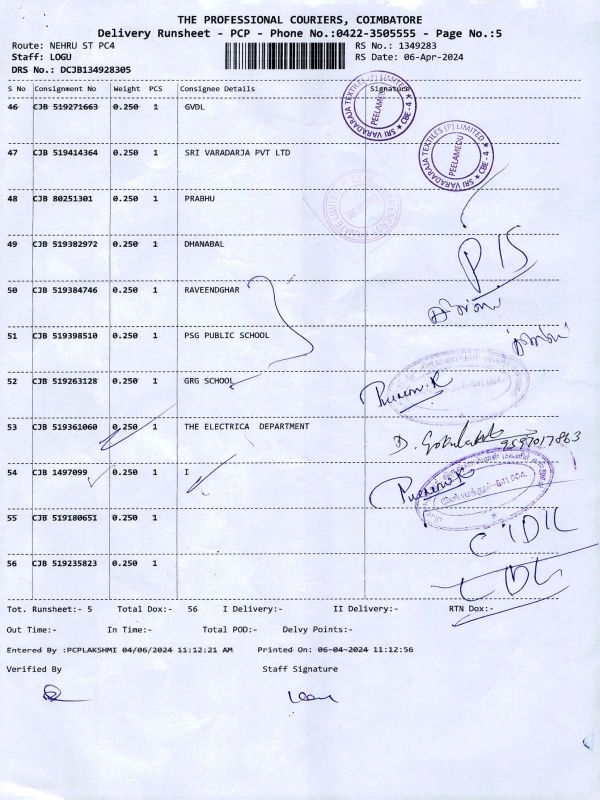 THE PROFESSIONAL COURIERS, COIMBATORE
Delivery Runsheet - PCP - Phone No.:0422-3505555 - Page No.:5
Route: NEHRU ST PC4 RS No.: 1349283
Staff: LOGU RS Date: 06-Apr-2024
DRS No.: DCJB134928305
S No Consignment No Weight PCS Consignee Details Signature
46 CJB 519271663 0.250 1 GVDL
SRI VARADARAJA TEXTILES (P) LIMITED ★ CBE - 4 ★
PEELAMEDU
47 CJB 519414364 0.250 1 SRI VARADARJA PVT LTD
SRI VARADARAJA TEXTILES (P) LIMITED ★ CBE - 4 ★
PEELAMEDU
48 CJB 80251301 0.250 1 PRABHU
49 CJB 519382972 0.250 1 DHANABAL
50 CJB 519384746 0.250 1 RAVEENDGHAR
51 CJB 519398510 1 0.250 PSG PUBLIC SCHOOL
52 CJB 519263128 0.250 1 GRG SCHOOL
53 CJB 519361060 0.250 1 THE ELECTRICA DEPARTMENT
9597017863
54 CJB 1497099 0.250 1 I
55 CJB 519180651 0.250 1
56 CJB 519235823 0.250 1
Tot. Runsheet:- 5 Total Dox:- 56 I Delivery:- II Delivery:- RTN Dox:-
Out Time:- In Time:- Total POD:- Delvy Points:-
Entered By :PCPLAKSHMI 04/06/2024 11:12:21 AM Printed On: 06-04-2024 11:12:56
Verified By Staff Signature